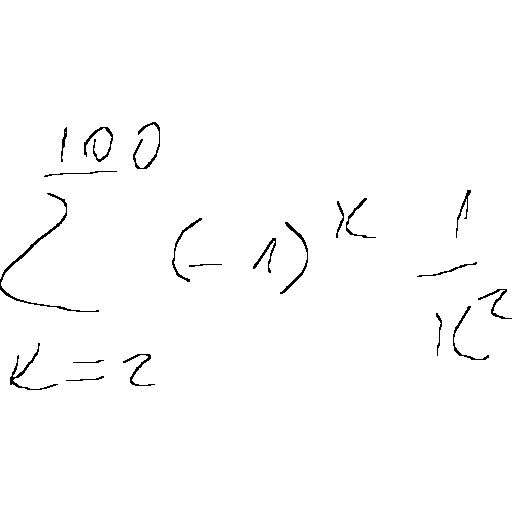 \sum_{k=2}^{100} (-1)^k \frac{1}{k^2}